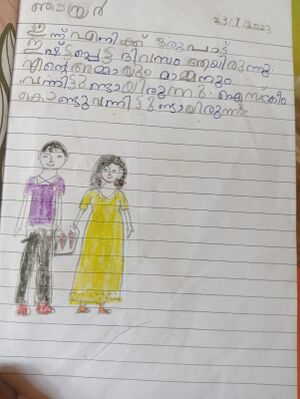 ഞായർ
23/7/2023
ഇന്ന് എനിക്ക് ഒരുപാട്
ഇഷ്ടപ്പെട്ട ദിവസം ആയിരുന്നു
എന്റെ അമ്മായും മാമനും
വന്നിട്ടുണ്ടായിരുന്നു. ഐസ്ക്രീം
കൊണ്ടുവന്നിട്ടുണ്ടായിരുന്നു.